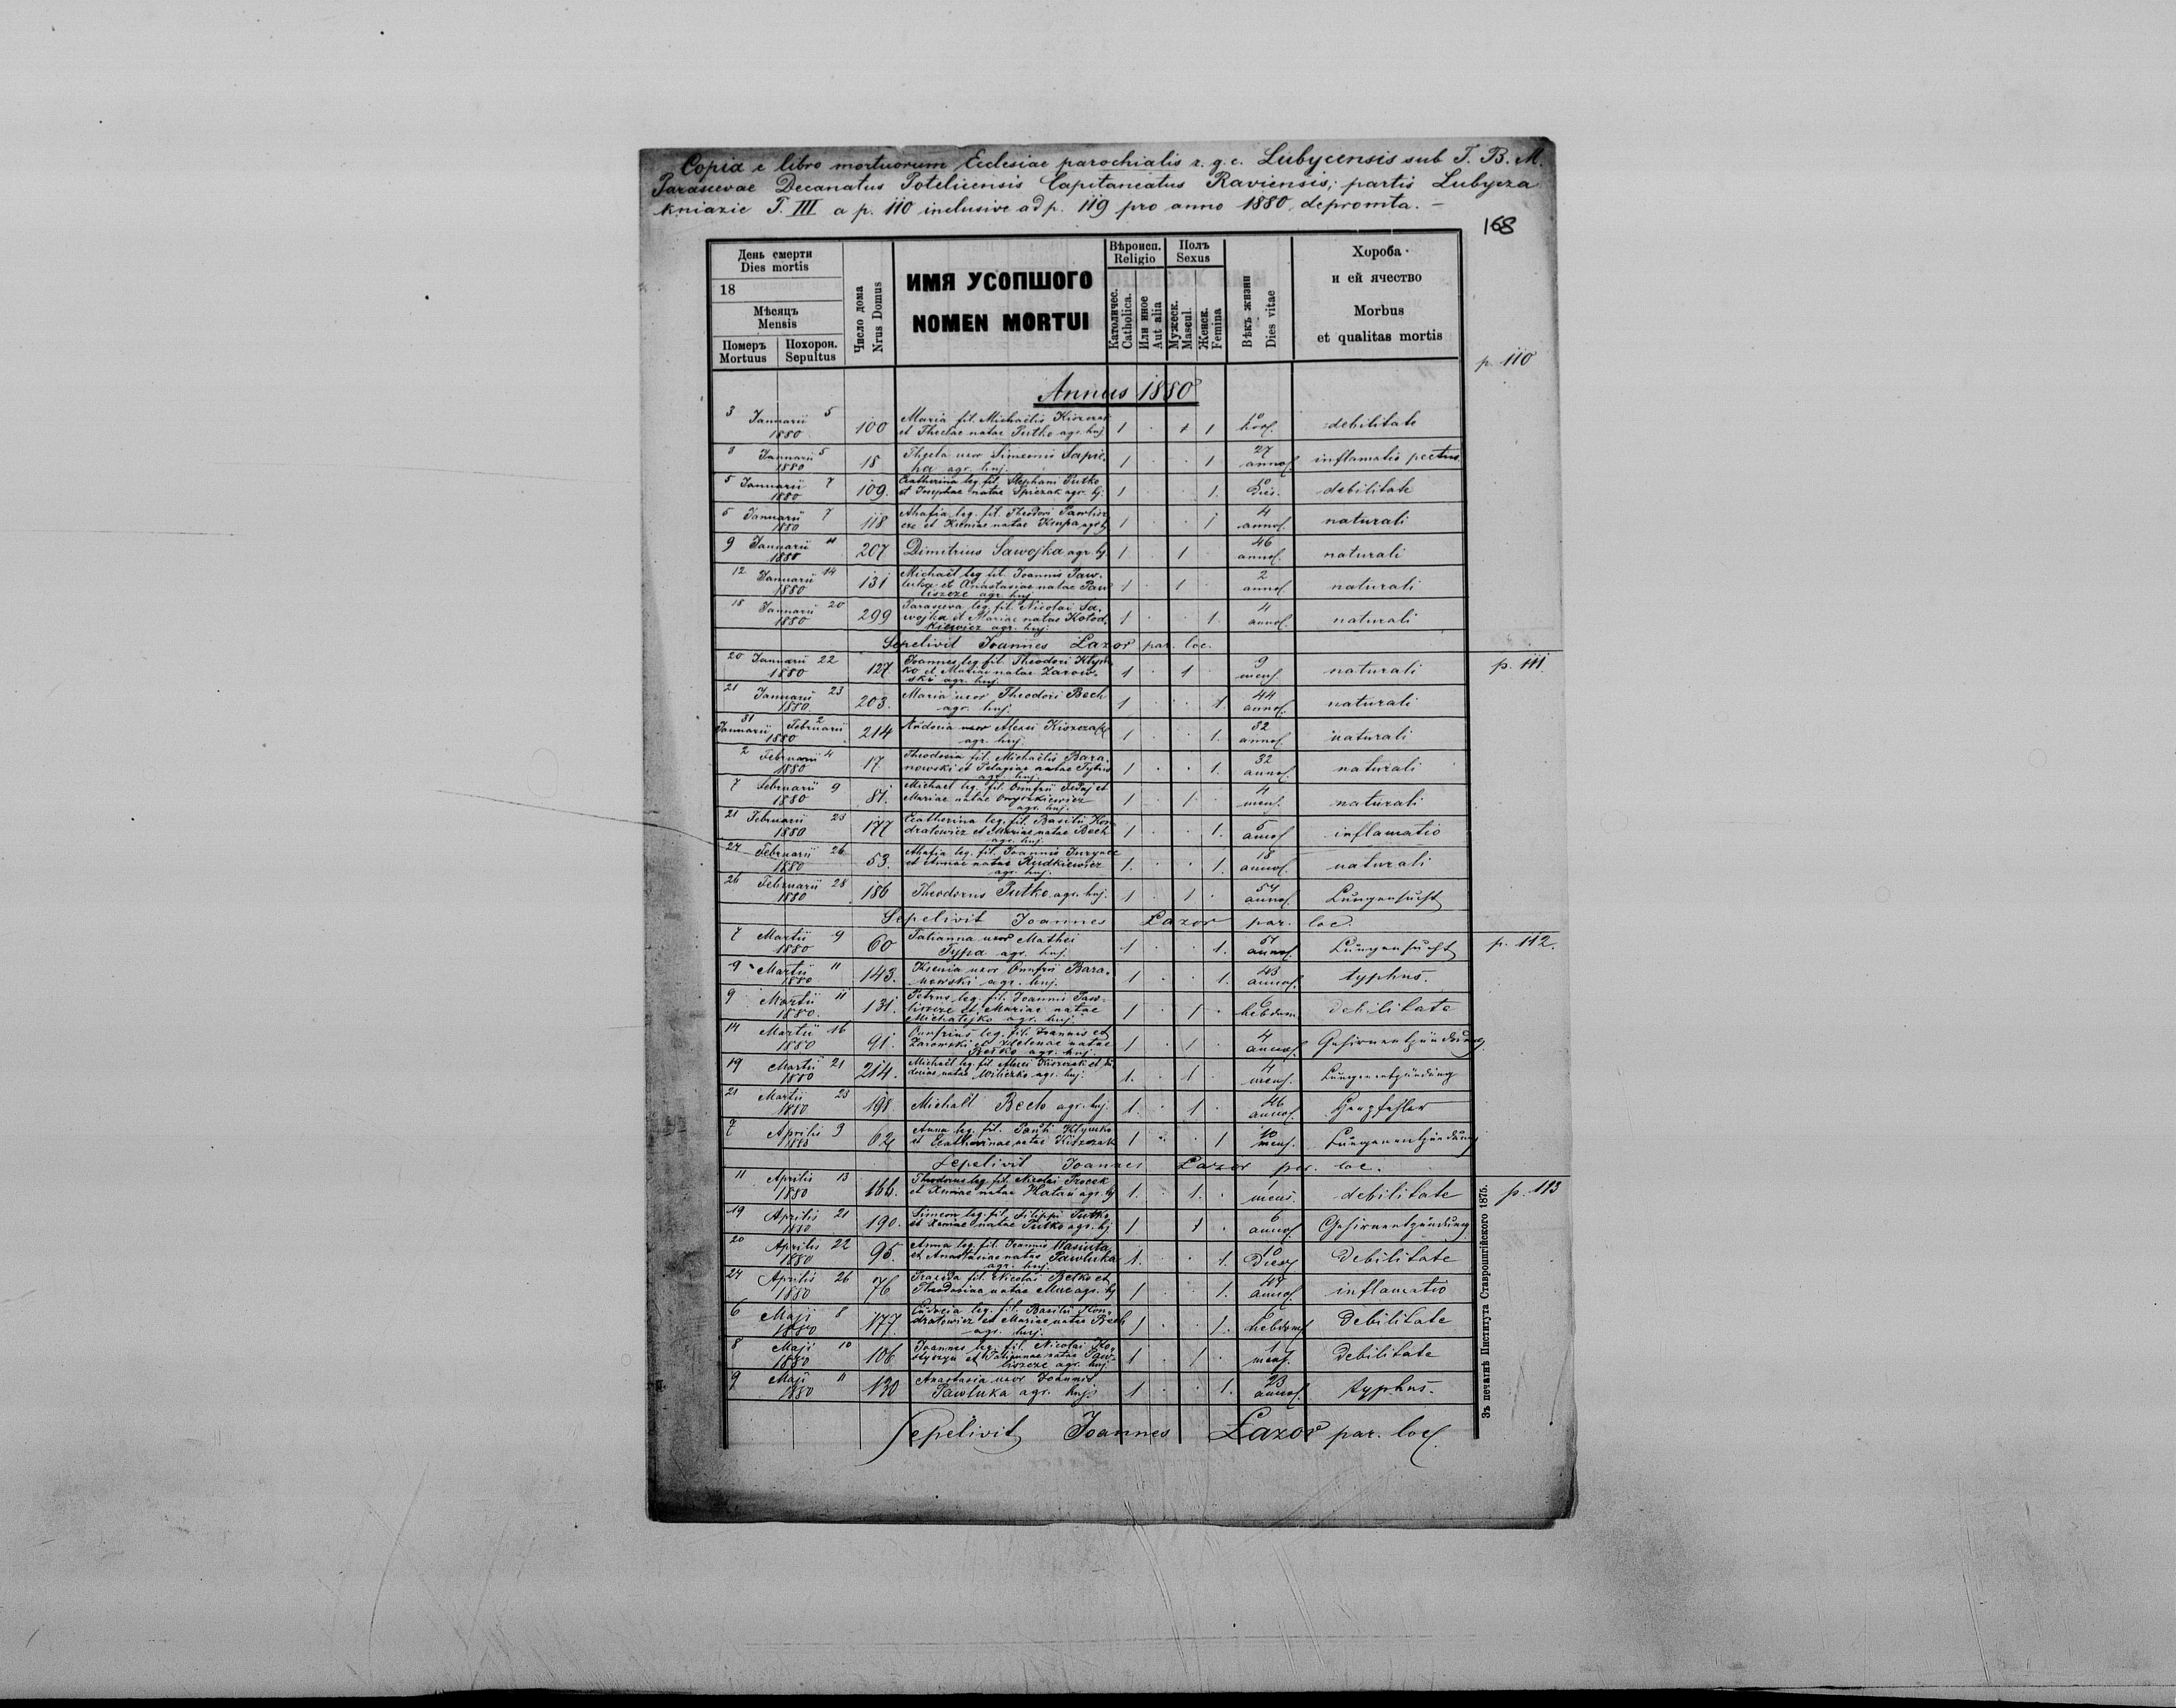 Copia e libro mortuorum Ecclesiae parochialis r. g. c. Lubycensis sub T. B. M.
Parascevae Decanatus Potelicensis Capitaneatus Raviensis; partis Lubycza
Kniazie T. III a p. 110 inclusive ad p. 119 pro anno 1880 depromta. –
168
День смерти
Dies mortis
18
Мѣсяцъ
Mensis
Померъ Похорон.
Mortuus Sepultus
Число дома
Nrus Domus
ИМЯ УСОПШОГО
NOMEN MORTUI
Вѣроисп.
Religio
Католичес.
Catholica.
Или иное
Aut alia
Полъ
Sexus
Мужеск.
Mascul.
Женск.
Femina
Вѣкъ жизни
Dies vitae
Хороба
и ей ячество
Morbus
et qualitas mortis
p. 110
Annus 1880
3 Januarii 5 1880 100 Maria fil. Michaëlis Kiszczak
et Theclae natae Putko agr. huj. 1 . 1 1 10 hor. debilitate
3 Januarii 5 1880 18 Thecla uxor Simeonis Sapie-
ha agr. huj. 1 . . 1 27 annos. inflamatio pectus
5 Januarii 7 1880 109. Catherina leg. fil. Stephani Putko
et natae agr. hj. 1 . . 1. 10 dies. debilitate
5 Januarii 7 1880 118 Ahafia leg. fil. Theodori Pawlisz
cze et Xeniae natae agr. hj 1 . . 1 4 annos. naturali
9 Januarii 11 1880 207 Dimitrius Sawojka agr. hj 1 . 1 46 annos. naturali
12 Januarii 14 1880 131 Michaël leg. fil. Joannis Paw-
luka et Anastasiae natae Paw
liszcze agr. huj. 1 . 1 . 2 annos. naturali
18 Januarii 20 1880 299 Parasceva leg. fil. Nicolai Sa-
wojka et Mariae natae Kołod-
kiewicz agr. huj. 1 . . 1. 4 annos. naturali
Sepelivit Joannes Lazor par. loc.
20 Januarii 22 1880 127. Joannes leg. fil. Theodori Klym-
ko et Mariae natae Zarow-
ski agr. huj. 1 . 1 . 9 mens. naturali
p. 111
21 Januarii 23 1880. 203. Maria uxor Theodori Bech
agr. huj. 1 . . 1. 44 annos. naturali
31 Januarii 2 Februarii 1880 214 uxor Alexii Kiszczak
agr. huj. 1 . . 1. 32 annos. naturali
2 Februarii 4 1880 17. Theodosia fil. Michaëlis Bara-
nowski et Pelagiae natae
agr. huj. 1 . . 1. 32 annos. naturali
7 Februarii 9 1880 81. Michaël leg. fil. Onufrii Fedaj et
Mariae natae Onyszkiewicz
agr. huj. 1 . 1 . 4 mens. naturali
21 Februarii 23 1880 177 Catherina leg. fil. Basilii Kon
dratowicz et Mariae natae Bech
agr. huj. 1 . . 1. 5 annos inflamatio
24 Februarii 26 1880 53. Ahafia leg. fil. Joannis
et Annae natae Rudkiewicz
agr. huj. 1. . . 1. 18 annos. naturali
26 Februarii 28 1880 186 Theodorus Putko agr. huj. 1 . 1 . 54 annos. Lungensucht
Sepelivit Joannes Lazor par. loc.
7 Martii 9 1880 60 Tatianna uxor Mathei
Typa agr. huj. 1 . . 1. 51 annos. Lungensucht
p. 112.
9 Martii 11 1880 143. Ksenia uxor Onufrii Bara-
nowski agr. huj. 1 . . 1. 43 annos. typhus.
9 Martii 11 1880. 131. Petrus leg. fil. Joannis Paw-
liszcze et Mariae natae
Michalejko agr. huj. 1 . 1 . 6 hebdom debilitate
14 Martii 16 1880 91. Onufrius leg. fil. Joannis et
Zarowski et Helenae natae
agr. huj. 1 . 1 . 4 annos. Gehirnentzündung
19 Martii 21 1880 214. Michaël leg. fil. Alexii Kiszczak et
natae Wiliczko agr. huj. 1. . 1 . 4 mens. Lungenentzündung
21 Martii 23 1880 198 Michaël Bech agr. huj. 1. . 1 . 46 annos. Herzfehler
7 Aprilis 9 62 Anna leg. fil. Pauli Klymko
et Catherinae natae Kiszczak 1 . . 1 10 mens. Lungenentzündung
Sepelivit Joannes Lazor par. loc.
11 Aprilis 13 1880 166. Theodorus leg. fil. Nicolai Procek
et Xeniae natae agr. hj 1. . 1. . 1 mens. debilitate
p. 113
19 Aprilis 21 1880 190. Simeon leg. fil. Filippi Putko
et Xeniae natae Putko agr. hj 1 . 1 . 6 annos. Gehirnentzündung
20 Aprilis 22 1880 95. Anna leg. fil. Joannis Wasiuta
et Anastasiae natae Pawluka
agr. huj. 1. . . 1. 10 dies Debilitate
24 Aprilis 26 1880 76 fil. Nicolai et
Theodosiae natae agr. hj 1 . . 1. 47 annos. inflamatio
6 Maji 8 1880 177. Eudocia leg. fil. Basilii Kon-
dratowicz et Mariae natae Bech
agr. huj. 1 . . 1. 6 hebdom. Debilitate
8 Maji 10 1880 106. Joannes leg. fil. Nicolai
et Tatiannae natae Paw-
liszcze agr. huj. 1 . 1 . 1 mens. Debilitate
9 Maji 11 1880 130 Anastasia uxor Joannis
Pawluka agr. huj. 1 . . 1. 23 annos. typhus.
Sepelivit Joannes Lazor par. loc.
Зъ печатнѣ Института Ставропигійского 1875.